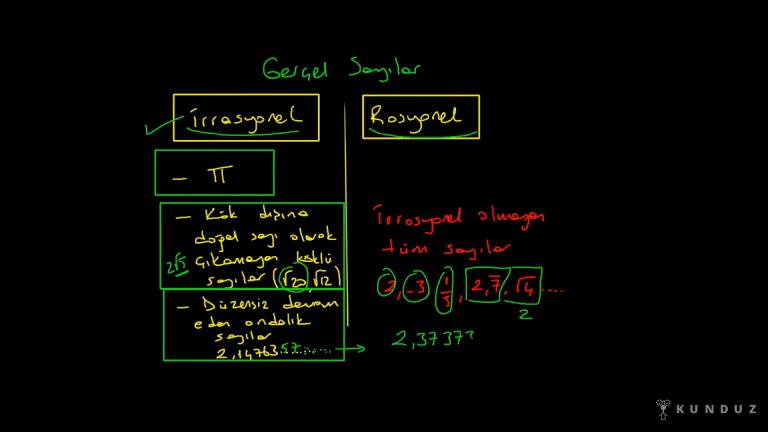 Gerçel Sayılar
İrrasyonel
Rasyonel
— π
— Kök dışına
doğal sayı olarak
çıkamayan köklü
sayılar (√20, √12)
2√5
— Düzensiz devam
eden ondalık
sayılar
2,1476357........
İrrasyonel olmayan
tüm sayılar
2, -3, 1/5, 2,7̅, √4 ....
2
2,3737?
KUNDUZ